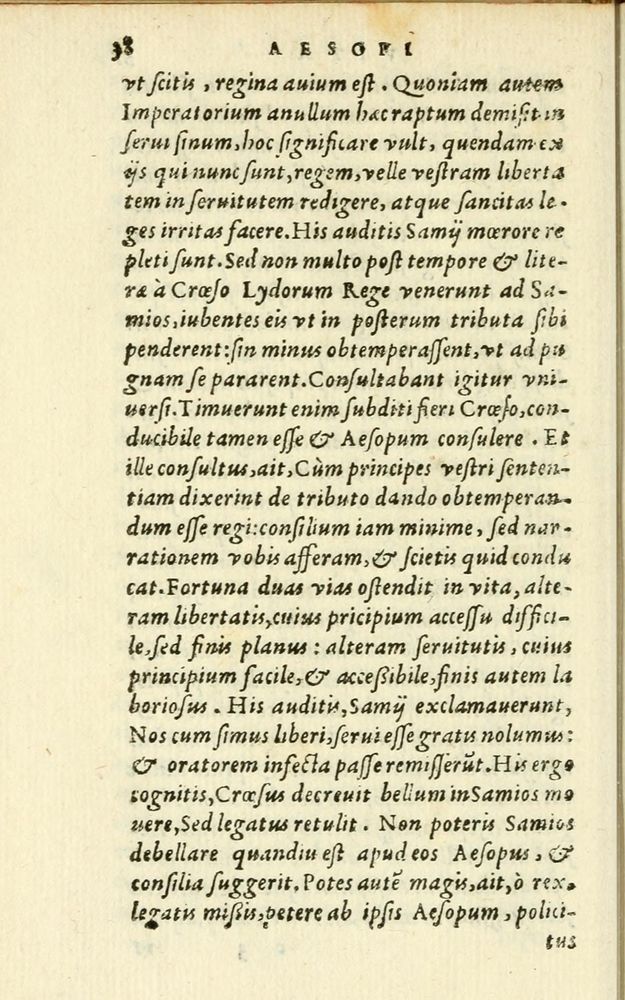 38 AESOPI
vt scitis, regina auium est. Quoniam autem
Imperatorium anullum hæc raptum demisit in
serui sinum, hoc significare vult, quendam ex
ijs qui nunc sunt, regem, velle vestram liberta
tem in seruitutem redigere, atque sancitas le-
ges irritas facere. His auditis Samij mœrore re
pleti sunt. Sed non multo post tempore & lite-
ræ à Crœso Lydorum Rege venerunt ad Sa-
mios, iubentes eis vt in posterum tributa sibi
penderent: sin minus obtemperassent, vt ad pu
gnam se pararent. Consultabant igitur vni-
uersi. Timuerunt enim subditi fieri Crœso, con-
ducibile tamen esse & Aesopum consulere. Et
ille consultus, ait, Cùm principes vestri senten-
tiam dixerint de tributo dando obtemperan-
dum esse regi: consilium iam minime, sed nar-
rationem vobis afferam, & scietis quid condu
cat. Fortuna duas vias ostendit in vita, alte-
ram libertatis, cuius pricipium accessu diffici-
le, sed finis planus: alteram seruitutis, cuius
principium facile, & accessibile, finis autem la
boriosus. His auditis, Samij exclamauerunt,
Nos cum simus liberi, serui esse gratis nolumus:
& oratorem infecta passe remisserũt. His ergo
cognitis, Crœsus decreuit bellum in Samios mo
uere, Sed legatus retulit. Non poteris Samios
debellare quandiu est apud eos Aesopus, &
consilia suggerit. Potes autẽ magis, ait, ò rex,
legatis missis, petere ab ipsis Aesopum, polici-
tus